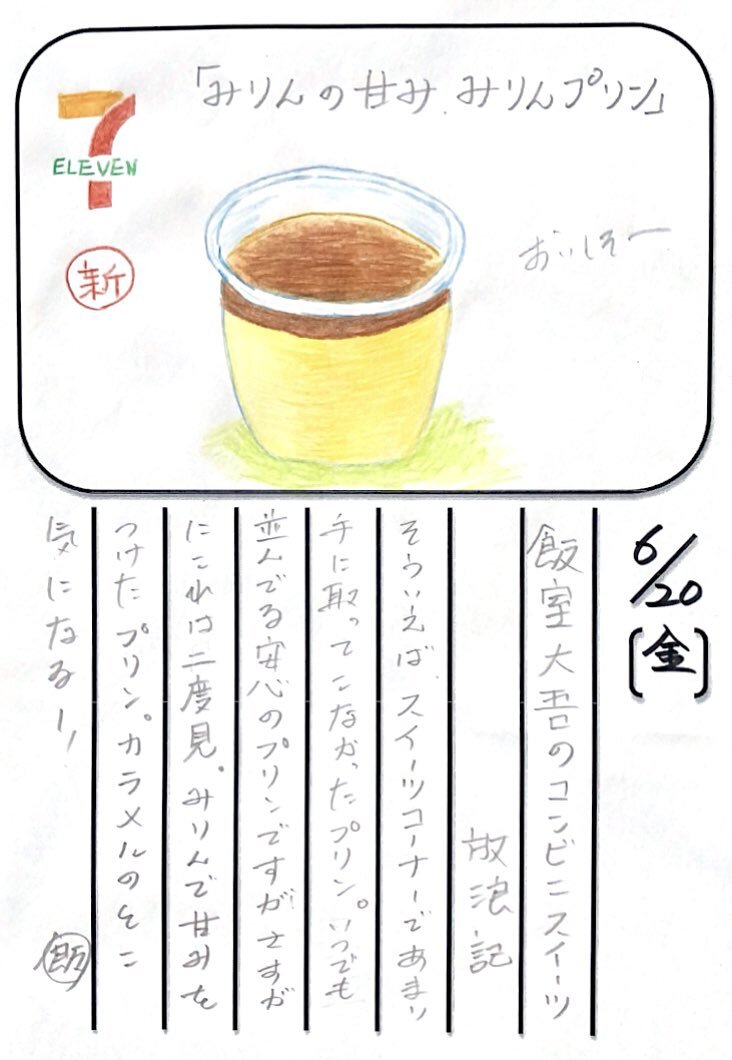 「みりんの甘み みりんプリン」
7
ELEVEN
新
おいしそー
6/20
(金)
飯室大吾のコンビニスイーツ
放浪記
そういえば、スイーツコーナーであまり
手に取ってこなかったプリン。いつでも
並んでる安心のプリンですがさすが
にこれは二度見。みりんで甘みを
つけたプリン。カラメルのそこ
気になるー!
飯